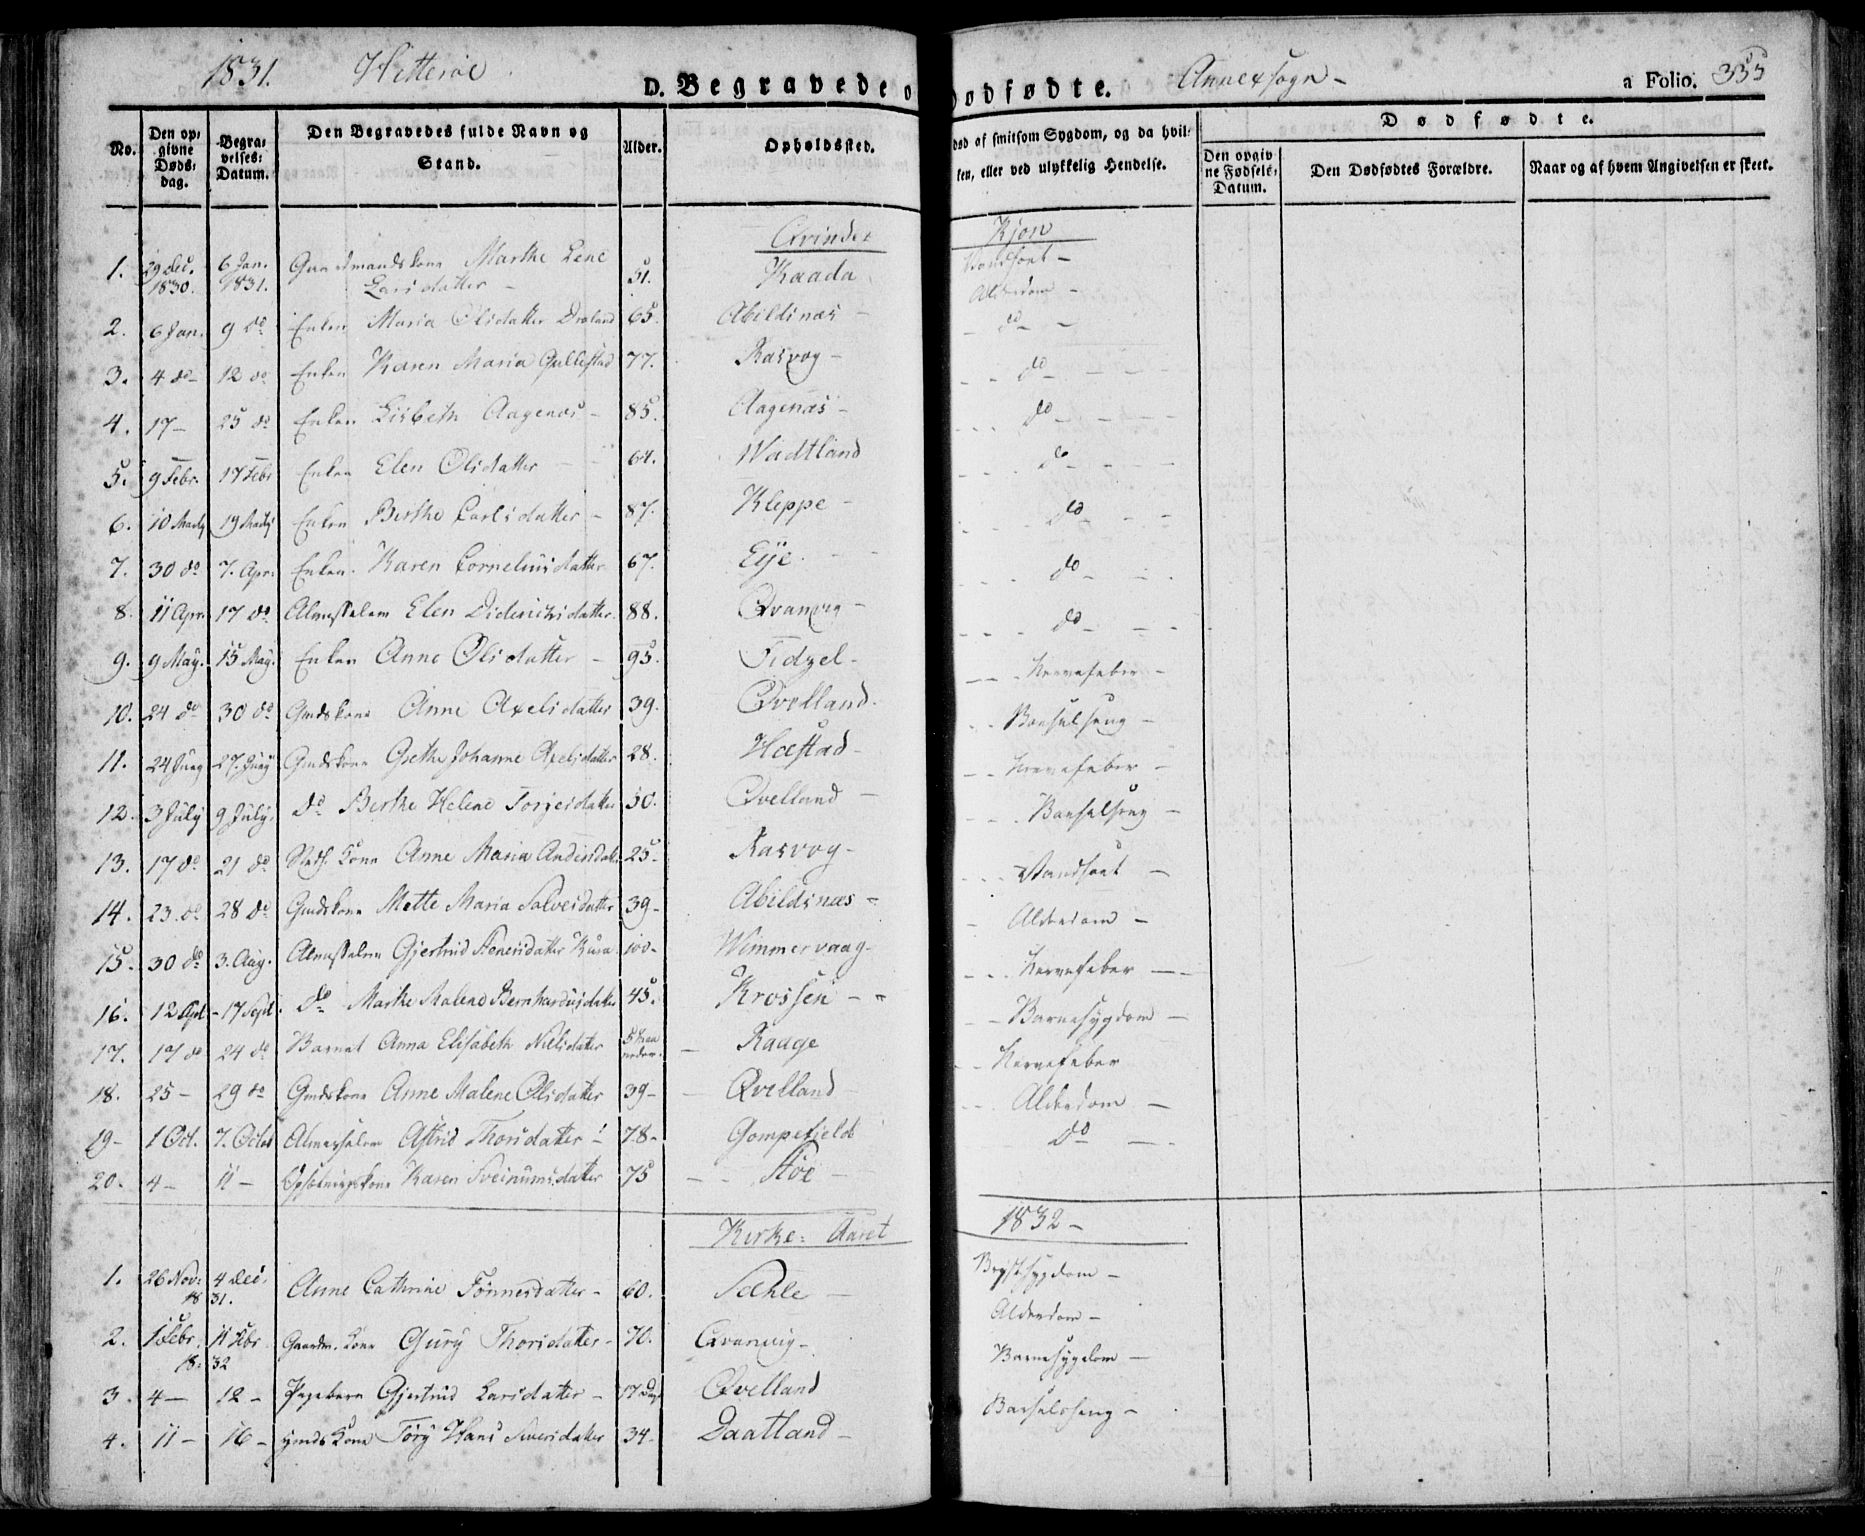 1831. Hitterøe
D. Begravede o
ødfødte. Annexsogn - a Folio. 355
No.
Den op-
givne
Døds-
dag.
Begra-
velses-
Datum.
Den Begravedes fulde Navn og
Stand.
Alder.
Opholdssted.
død af smitsom Sygdom, og da hvil-
ken, eller ved ulykkelig Hendelse.
Dødfødte.
Den opgiv-
ne Fødsels-
Datum.
Den Dødfødtes Forældre.
Naar og af hvem Angivelsen er skeet.
Qvinde- Kjøn
1. 29 Dec. 1830. 6 Jan. 1831. Gaardmandskone Marthe Lene Larsdatter - 51. Kaada Vandsoet -
2. 6 Jan. 9 do Enken Maria Olsdatter 65. Abildsnæs - Alderdom -
3. 4 do - 12 do Enken Karen Maria Gullestad 77. Rasvog - do -
4. 17 - 25 do Enken Lisbeth Aagenæs - 85. Aagenæs - do -
5. 9 Febr. 17 Febr Enken Elen Olsdatter - 64. Wadtland do -
6. 10 Marty 19 Marty Enken Berthe Carlsdatter - 87. Kleppe - do -
7. 30 do 7. Apr. Enken Karen Corneliusdatter 67. Eye. do -
8. 11 Apr. 17 do Almisselem Elen Diderichsdatter 88. Qvanvig - do -
9. 9 May. 15 May. Enken Anne Olsdatter - 95. Fidzel - do -
10. 24 do 30 do Gmdskone Anne Axelsdatter 39. Qvelland. Nervefeber -
11. 24 Juny 27. Juny Gmdskone Grethe Johanne Axelsdatter 28. Hæstad - Barselseng -
12. 3 July 9 July. do Berthe Helene Torjesdatter 50. Qvelland - Nervefeber -
13. 17 do 21 do Kone Anne Maria Andersdatter 25 - Rasvog - Barselseng -
14. 23. do 28 do Gmdskone Mette Maria Salvesdatter 39 - Abildsnæs - Vandsoet -
15. 30 do 3. Aug. Almisselem Gjertrud Stenersdatter 100 - Wimmervaag - Alderdom -
16. 12 Sept - 17 Sept. do Marthe Malene Bernhardusdatter 45. Krossen - Nervefeber -
17. 17 do 24 do Barnet Anna Elisabeth Nielsdatter 5 Maaneder. Raage Barnesygdom -
18. 25 - 29 do Gmdskone Anne Malene Olsdatter 39 - Qvelland Nervefeber
19 - 1 Oct. 7. Octob Almisselem Astrid Thorsdatter - 78 - Gompefjeld Alderdom -
20. 4 - 11 - Karen Sveinumsdatter 75 - Støe - do -
Kirke- Aaret 1832 -
1. 26 Nov: 4 Dec. 18 31. Anne Cathrine Tønnesdatter - 60. Sæhle - Brystsygdom -
2. 1 Febr. 11 Febr 18- 32 Gaardm. Kone Gury Thorsdatter - 70. Qvanvig - Alderdom -
3. 4 - 12 - Pigebarn Gjertrud Larsdatter - 17 Dage Qvelland Barnesygdom -
4. 11 - 16 - Gmds Kone Tøry Hans Siversdatter 34 - Daatland - Barselseng -